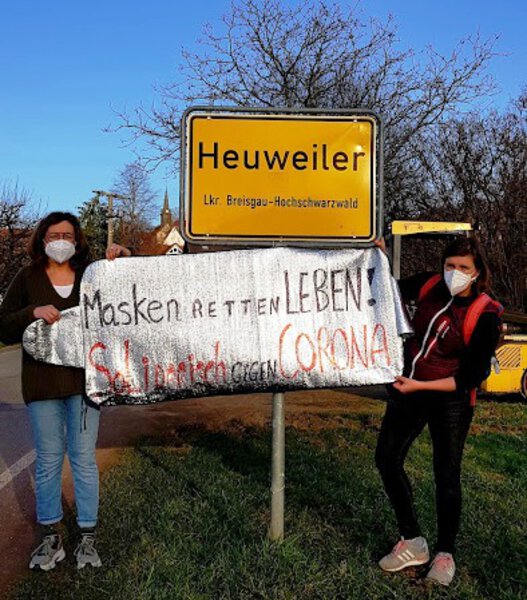 Heuweiler
Lkr. Breisgau-Hochschwarzwald
Masken RETTEN LEBEN!
GEGEN CORONA